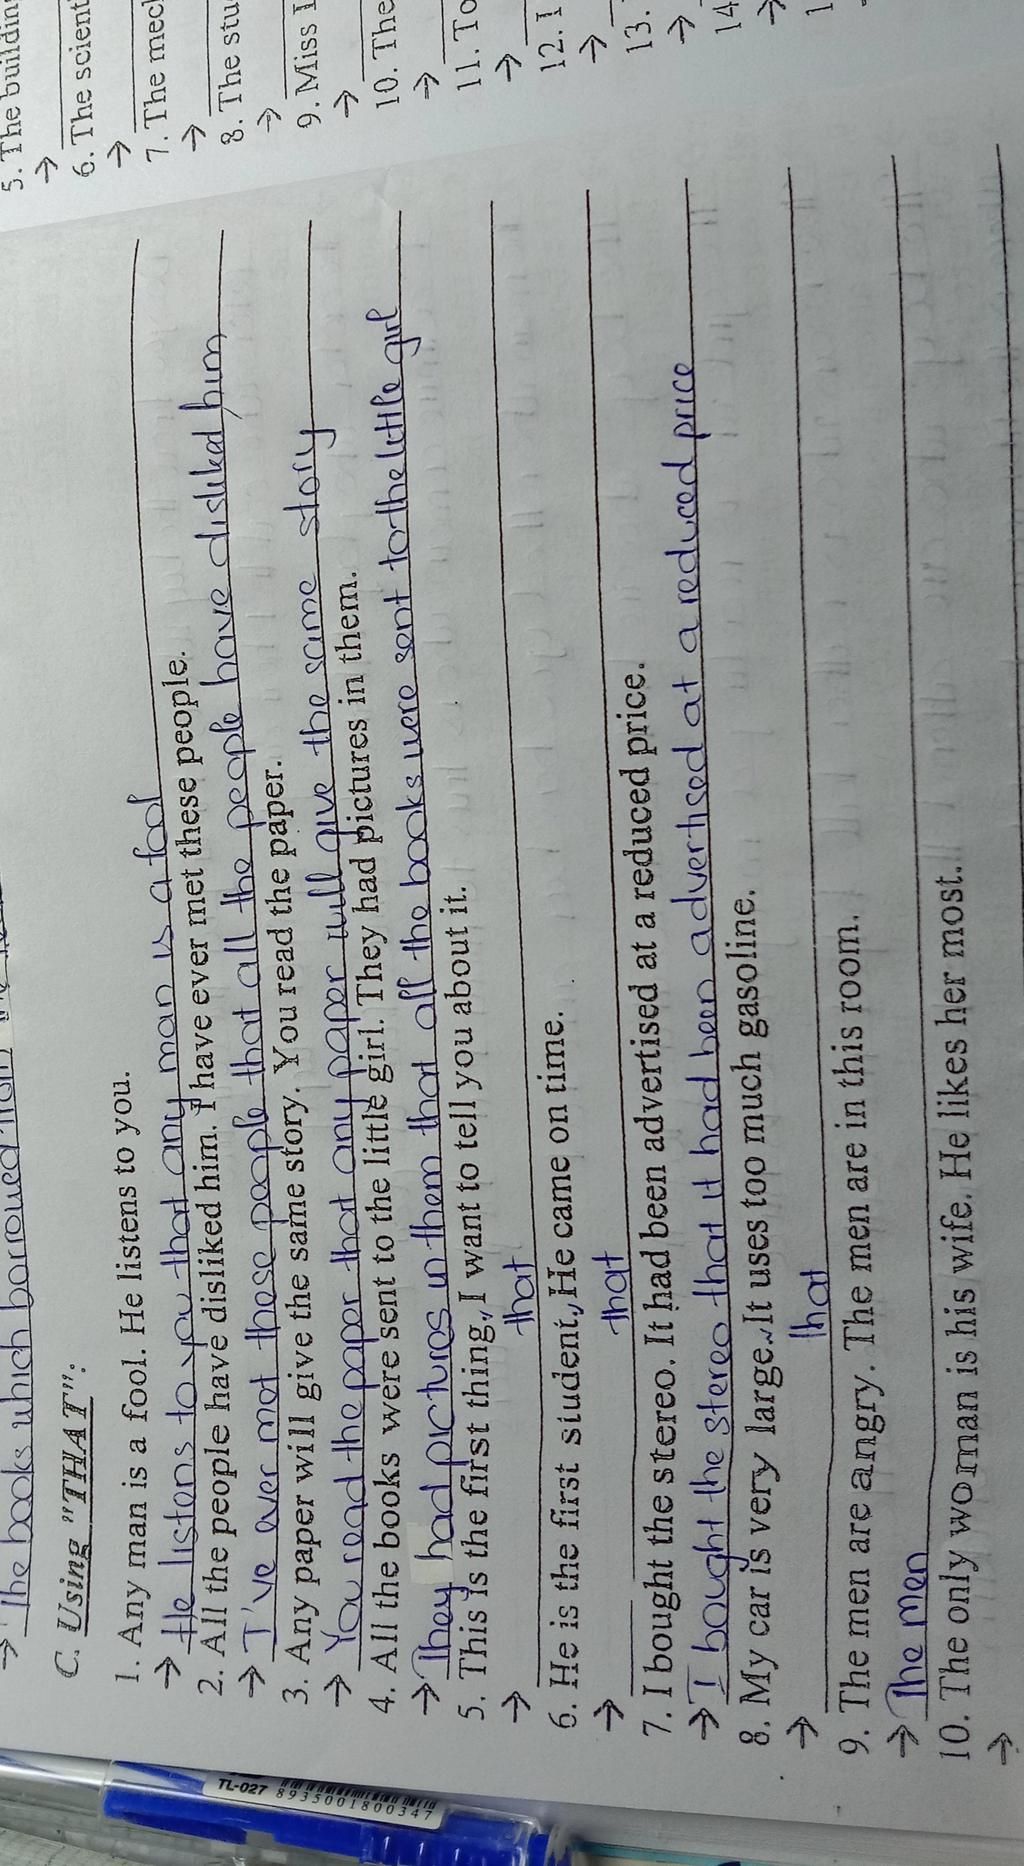 The books which borrowed from
C. Using "THAT":
1. Any man is a fool. He listens to you.
→ He listens to you that any man is a fool
2. All the people have disliked him. I have ever met these people.
→ I've ever met these people that all the people have disliked him
3. Any paper will give the same story. You read the paper.
→ You read the paper that any paper will give the same story
4. All the books were sent to the little girl. They had pictures in them.
→ They had pictures in them that all the books were sent to the little girl
5. This is the first thing, I want to tell you about it.
that
→
6. He is the first student, He came on time.
that
→
7. I bought the stereo. It had been advertised at a reduced price.
→ I bought the stereo that it had been advertised at a reduced price
8. My car is very large. It uses too much gasoline.
that
→
9. The men are angry. The men are in this room.
→ The men
10. The only woman is his wife. He likes her most.
→
5. The buildin
→
6. The scient
→
7. The mec
→
8. The stu
→
9. Miss
→
10. The
→
11. To
→
12. I
→
13.
→
14
→
1
TL-027
8935001800347